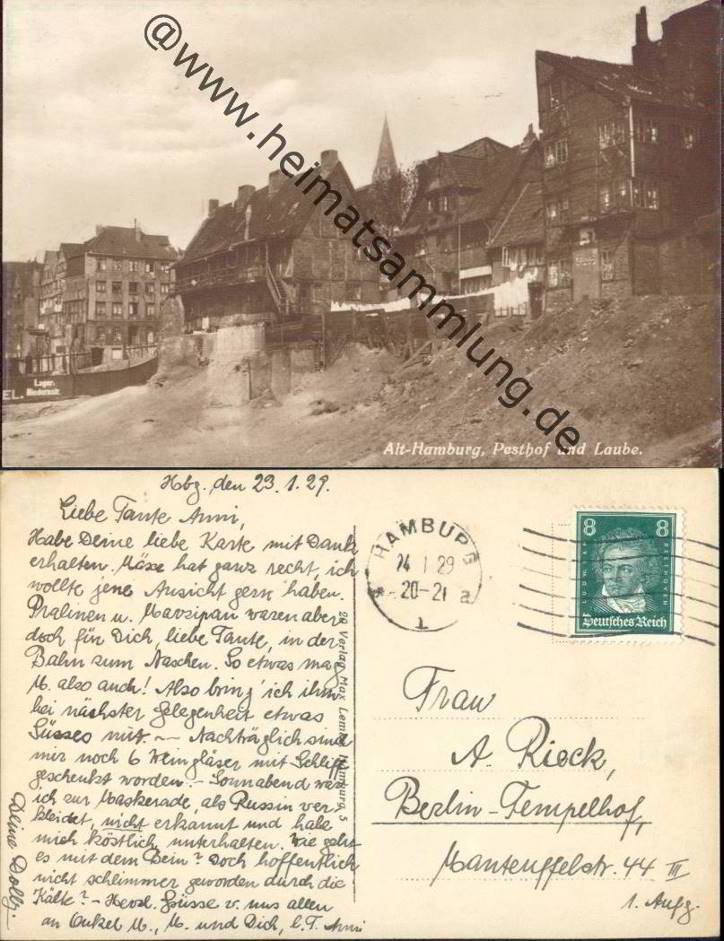 @www.heimatsammlung.de
Lager:
Niedernstr.
EL.
Alt-Hamburg, Pesthof und Laube.
Hbg. den 23.1.29.
Liebe Tante Anni,
Habe Deine liebe Karte mit Dank
erhalten. Mäxe hat ganz recht, ich
wollte jene Ansicht gern haben.
Pralinen u. Marzipan waren aber
doch für Dich, liebe Tante, in der
Bahn zum Naschen. So etwas mag
M. also auch! Also bring' ich ihm
bei nächster Gelegenheit etwas
Süsses mit. — Nachträglich sind
mir noch 6 Weingläser mit Schliff
geschenkt worden. - Sonnabend war
ich zur Maskerade, als Russin ver-
kleidet, nicht erkannt und habe
mich köstlich unterhalten. Wie geht
es mit dem Bein? Doch hoffentlich
nicht schlimmer geworden durch die
Kälte? - Herzl. Grüsse v. uns allen
an Onkel M., M. und Dich, l. T. Anni
Deine Dolly.
20 Verlag Max Hamburg 5
HAMBURG
24.1.29
20-21 a
1
8 8
LUDW. V. BEETHOVEN
Deutsches Reich
Frau
A. Rieck,
Berlin-Tempelhof,
Manteuffelstr. 44 III
1. Aufg.